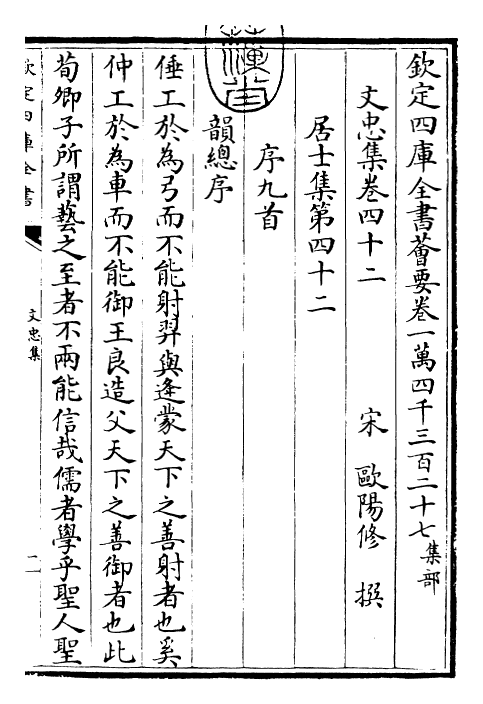 欽定四庫全書薈要卷一萬四千三百二十七集部
文忠集卷四十二　　宋　歐陽修　撰
居士集第四十二
序九首
韻總序
倕工於為弓而不能射羿與逄蒙天下之善射者也奚
仲工於為車而不能御王良造父天下之善御者也此
荀卿子所謂藝之至者不兩能信哉儒者學乎聖人聖
欽定四庫全書
文忠集
一